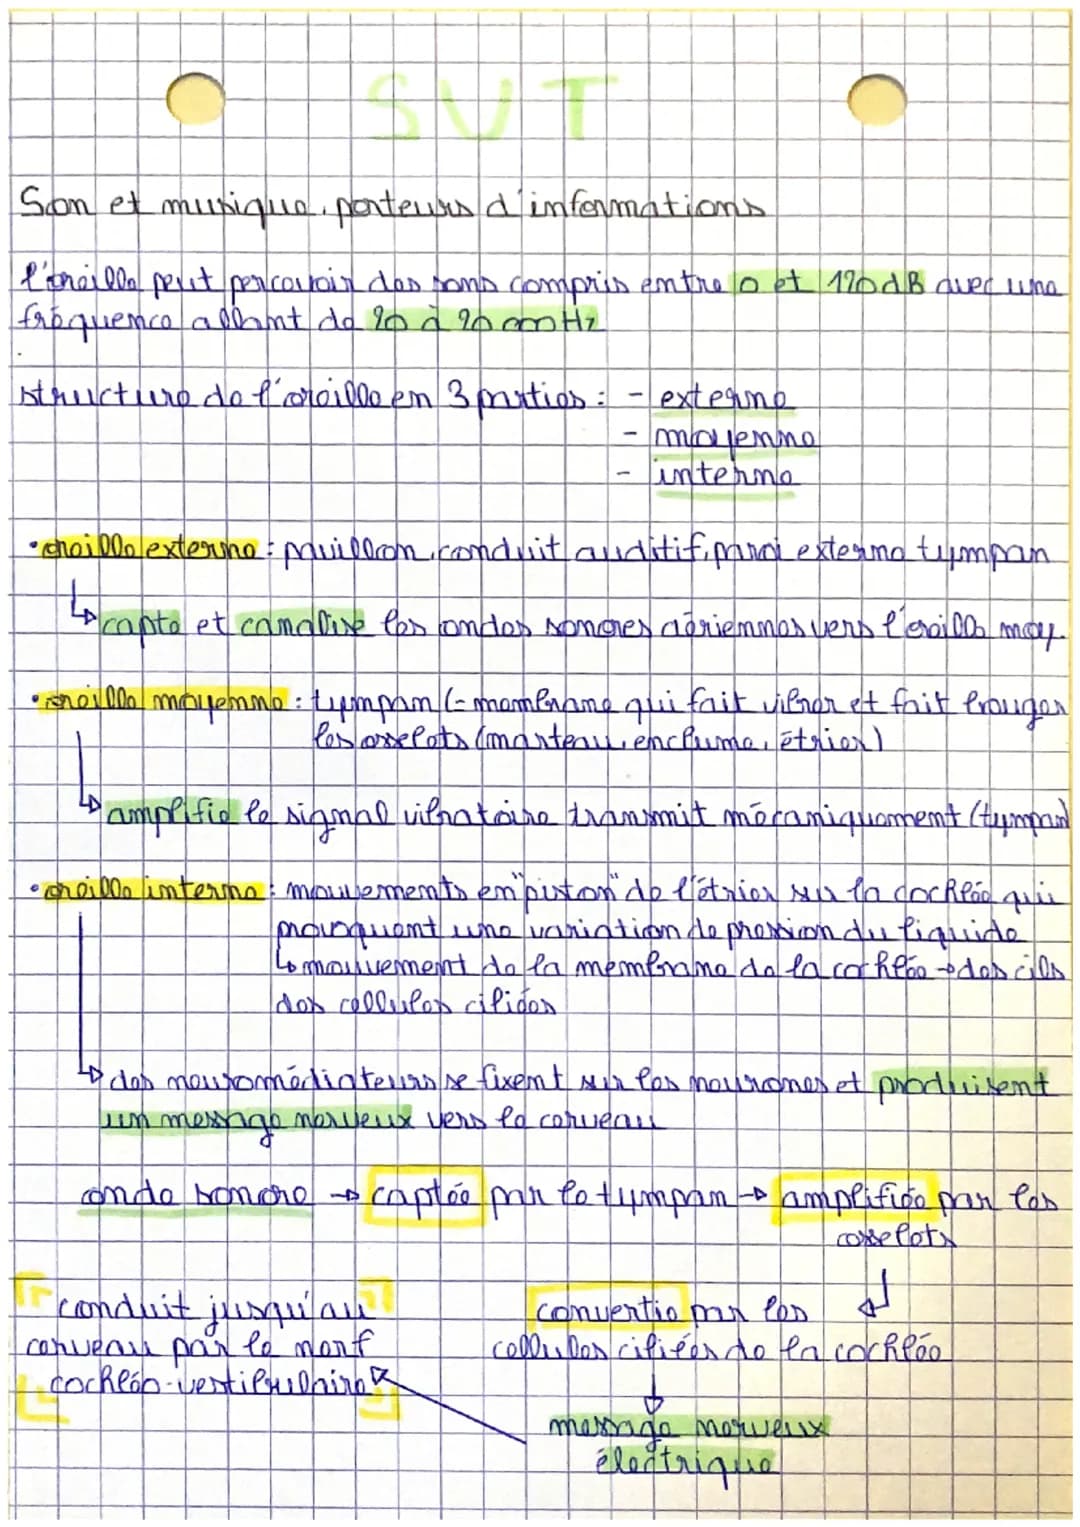 SUT
Son et musique, porteurs d'informations
l'oreille peut percevoir des sons compris entre 0 et 120 dB avec une
fréquence allant de 20 à 20 000 Hz
structure de l'oreille en 3 parties : - externe
- moyenne
- interne
• oreille externe : pavillon, conduit auditif, paroi externe tympan
↳ capte et canalise les ondes sonores aériennes vers l'oreille moy.
• oreille moyenne : tympan (= membrane qui fait vibrer et fait bouger
les osselets (marteau, enclume, étrier)
↳ amplifie le signal vibratoire transmit mécaniquement (tympan)
• oreille interne : mouvements en "piston" de l'étrier sur la cochlée qui
provoquent une variation de pression du liquide
↳ mouvement de la membrane de la cochlée → des cils
des cellules ciliées
↳ des neuromédiateurs se fixent sur les neurones et produisent
un message nerveux vers le cerveau
onde sonore → captée par le tympan → amplifiée par les
osselets
conduit jusqu'au
cerveau par le nerf
cochléo-vestibulaire
convertie par les
cellules ciliées de la cochlée
message nerveux
électrique